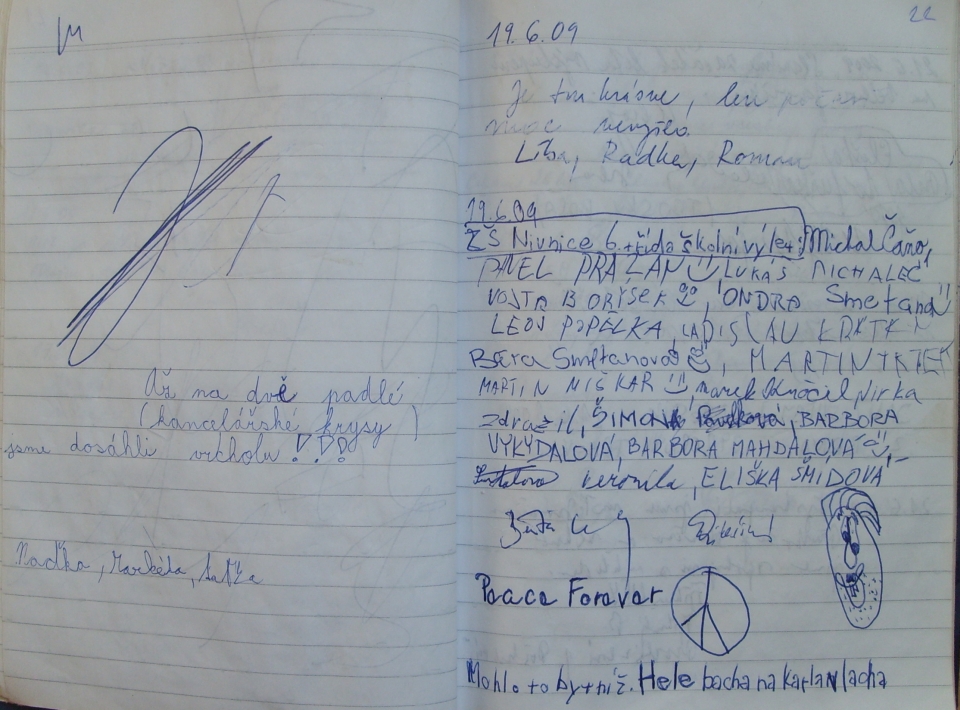 Až na dvě padlé
(kancelářské krysy)
jsme dosáhli vrcholu!!!
Naďka, Markéta, Laťka
22
19.6.09
Je tu krásne, len
moc
Liba, Radka, Roman
19.6.09
ZŠ Nivnice 6. třída školní výlet: Michal Čaňo,
PAVEL PRALAN LUKÁŠ MICHALEC
VOJTA BORÝSEK, ONDRA Smetana
LEOŠ POPELKA, LADISLAV KRÁTKÝ
Bára Smetanová, MARTIN
MARTIN MIŠKAR, marek Kročil, Jirka
zdražil, ŠIMON, BARBORA
VYKYDALOVÁ, BARBORA MAHDALOVÁ,
veronika, ELIŠKA ŠMIDOVÁ
Paaca Foravar
Mohlo to být níž. Hele bacha na kaplan lacha